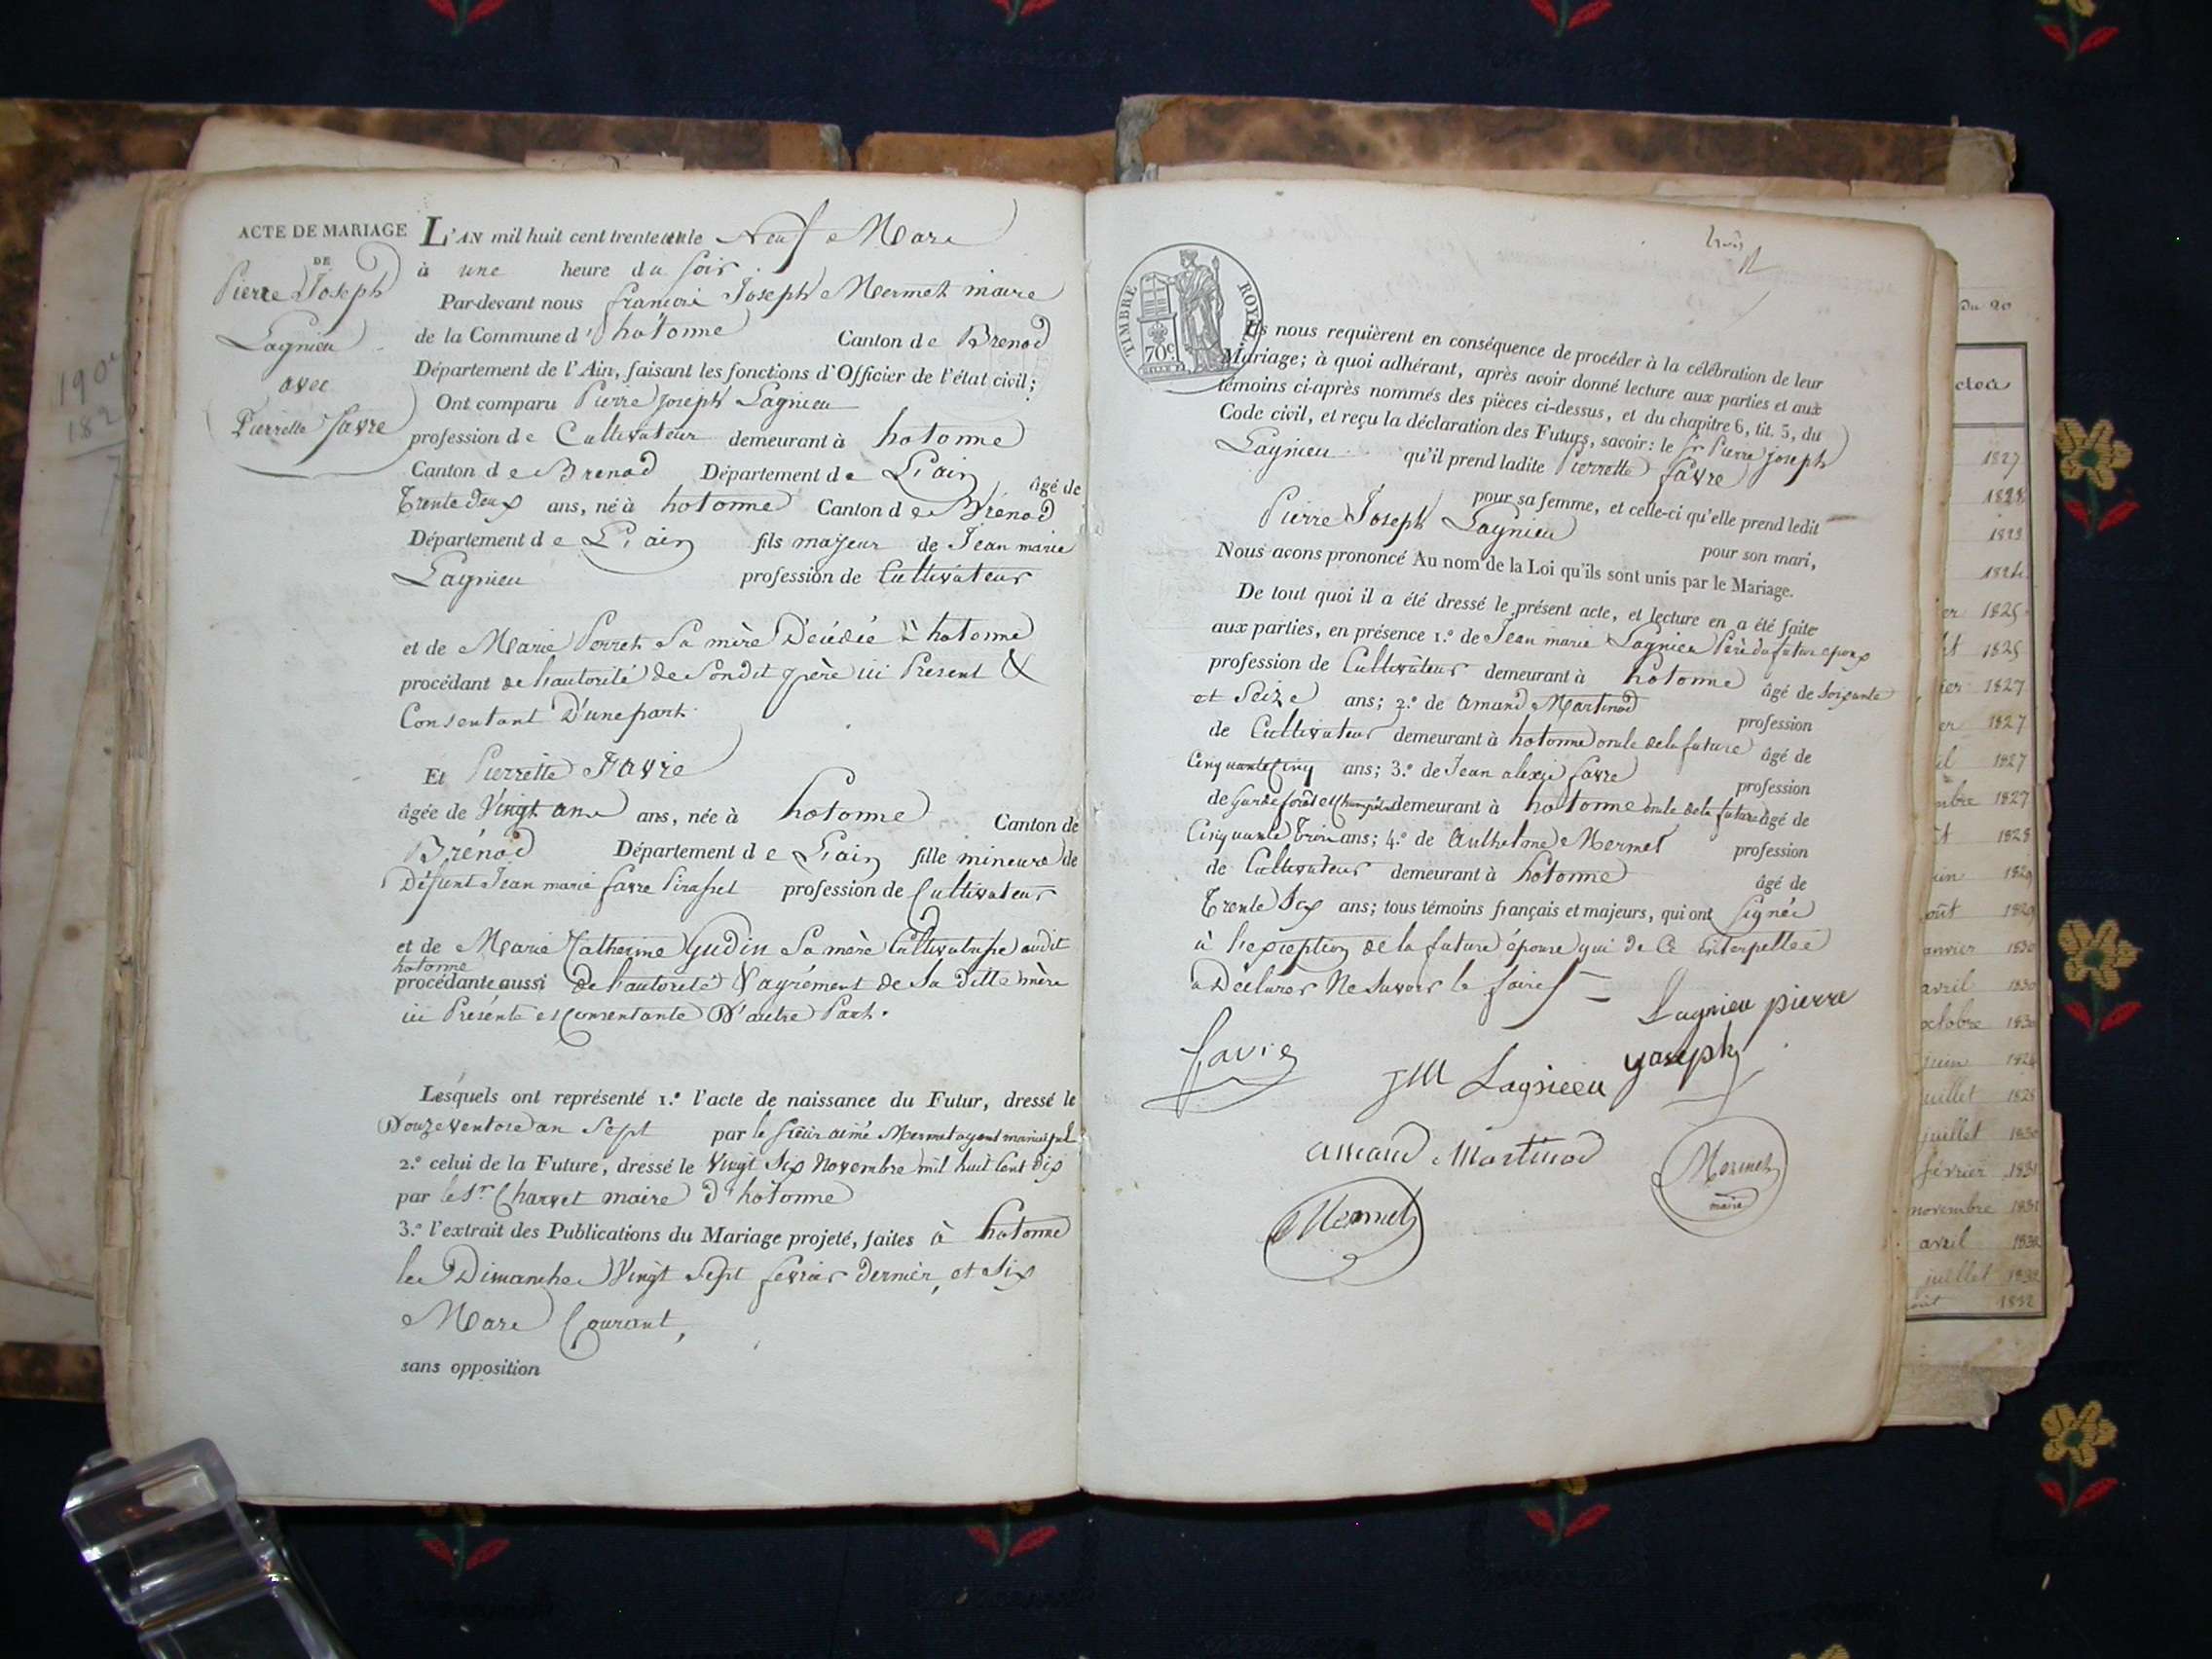 ACTE DE MARIAGE
DE
Pierre Joseph
Lagnieu
avec
Pierrette Favre
L'AN mil huit cent trente un le Neuf Mars
à une heure du soir.
Par-devant nous françois Joseph Mermet maire
de la Commune d'hotonne Canton de Brenod
Département de l'Ain, faisant les fonctions d'Officier de l'état civil;
Ont comparu Pierre joseph Lagnieu
profession de Cultivateur demeurant à hotonne
Canton de Brenod Département de L'ain âgé de
Trente deux ans, né à hotonne Canton de Brénod
Département de L'ain fils majeur de Jean marie
Lagnieu profession de Cultivateur
et de Marie Perret Sa mère Décédée à hotonne
procédant de l'autorité de Sondit père ici Présent &
Consentant D'une part.
Et Pierrette Favre
âgée de Vingt ans ans, née à hotonne Canton de
Brénod Département de L'ain fille mineure de
Défunt Jean marie favre profession de Cultivateur
et de Marie Catherine Gudin Sa mère Cultivatrice audit
hotonne
procédante aussi de l'autorité & agrément de Sa ditte mère
ici Présente et Consentante D'autre Part.
Lesquels ont représenté 1.º l'acte de naissance du Futur, dressé le
Douze ventose an Sept par le sieur aimé Mermet agent municipal
2.º celui de la Future, dressé le Vingt Six Novembre mil huit Cent dix
par le Sr Charvet maire d'hotonne
3.º l'extrait des Publications du Mariage projeté, faites à hotonne
les Dimanches Vingt Sept fevrier dernier, et Six
Mars Courant,
sans opposition
TIMBRE ROYAL
70c.
Ils nous requièrent en conséquence de procéder à la célébration de leur
Mariage; à quoi adhérant, après avoir donné lecture aux parties et aux
témoins ci-après nommés des pièces ci-dessus, et du chapitre 6, tit. 5, du
Code civil, et reçu la déclaration des Futurs, savoir: le Sr Pierre joseph
Lagnieu qu'il prend ladite Pierrette favre
pour sa femme, et celle-ci qu'elle prend ledit
Pierre Joseph Lagnieu
pour son mari,
Nous avons prononcé Au nom de la Loi qu'ils sont unis par le Mariage.
De tout quoi il a été dressé le présent acte, et lecture en a été faite
aux parties, en présence 1.º de Jean marie Lagnieu Père du futur epoux
profession de Cultivateur demeurant à hotonne âgé de Soixante
et Seize ans; 2.º de amand Martinod profession
de Cultivateur demeurant à hotonne oncle de la future âgé de
Cinquante Cinq ans; 3.º de Jean alexis favre profession
de Garde forêt et Champêtre demeurant à hotonne oncle de la future âgé de
Cinquante Trois ans; 4.º de Anthelme Mermet profession
de Cultivateur demeurant à hotonne âgé de
Trente Six ans; tous témoins français et majeurs, qui ont Signés
à l'exception de la future épouse qui de Ce interpellée
a Déclarer Ne Savoir le faire
Lagnieu pierre
joseph
favre
JM Lagnieu
amand Martinod
Mermet
maire
Mermet
190
182
du 20
1827
1828
1829
1824
er 1825
et 1825
ier 1827
er 1827
il 1827
mbre 1827
t 1828
uin 1829
oût 1829
anvier 1830
avril 1830
octobre 1830
juin 1824
juillet 1828
juillet 1830
février 1831
novembre 1831
avril 1832
juillet 1832
oût 1832